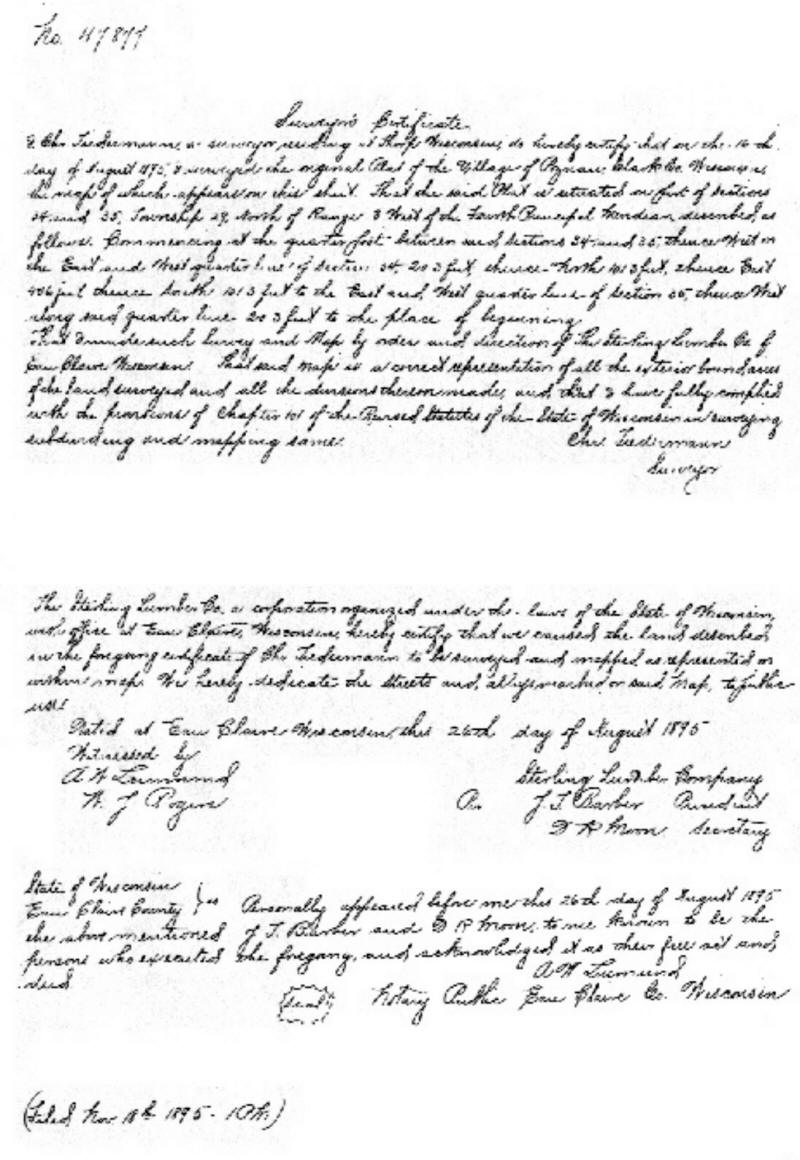 No. 47877
Surveyor's Certificate
I, Chr Tiedermann, a surveyor residing at Thorp Wisconsin, do hereby certify that on the 16th
day of August 1895, I surveyed the original Plat of the Village of Poznan, Clark Co. Wisconsin,
the map of which appears on this sheet. That the said Plat is situated on part of Sections
34 and 35, Township 29, North of Range 3 West of the Fourth Principal Meridian, described, as
follows. Commencing at the quarter post between said Sections 34 and 35, thence West on
the East and West quarter line of Section 34, 203 feet, thence North 1013 feet, thence East
406 feet thence South 1013 feet to the East and West quarter line of Section 35, thence West
along said quarter line 203 feet to the place of beginning.
That I made such Survey and Map by order and direction of The Sterling Lumber Co of
Eau Claire Wisconsin. That said Map is a correct representation of all the exterior boundaries
of the land surveyed and all the divisions thereon made, and that I have fully complied
with the provisions of Chapter 101 of the Revised Statutes of the State of Wisconsin in surveying
subdividing and mapping same. Chr Tiedermann
Surveyor
The Sterling Lumber Co. a corporation organized under the laws of the State of Wisconsin,
with office at Eau Claire, Wisconsin, hereby certify that we caused the land described
in the foregoing certificate of Chr Tiedermann to be surveyed and mapped as represented on
within map. We hereby dedicate the streets and alleys marked on said Map, to public
use.
Dated at Eau Claire Wisconsin, this 26th day of August 1895
Witnessed by
A W Sterling Lumber Company
W. J J. T. Barber President
D R Moon Secretary
State of Wisconsin
Eau Claire County } ss Personally appeared before me this 26th day of August 1895
the above mentioned J T. Barber and D R Moon, to me known to be the
persons who executed the foregoing, and acknowledged it as their free act and
deed
A W
(Seal) Notary Public Eau Claire Co. Wisconsin
(Filed Nov 18th 1895 - 1 P.M.)